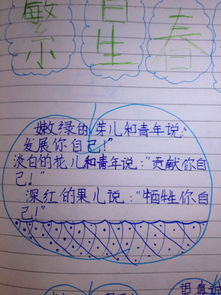 繁星春
嫩绿的芽儿和青年说:“
发展你自己!”
淡白的花儿和青年说:“贡献你自
己!”
深红的果儿说:“牺牲你自
己!”